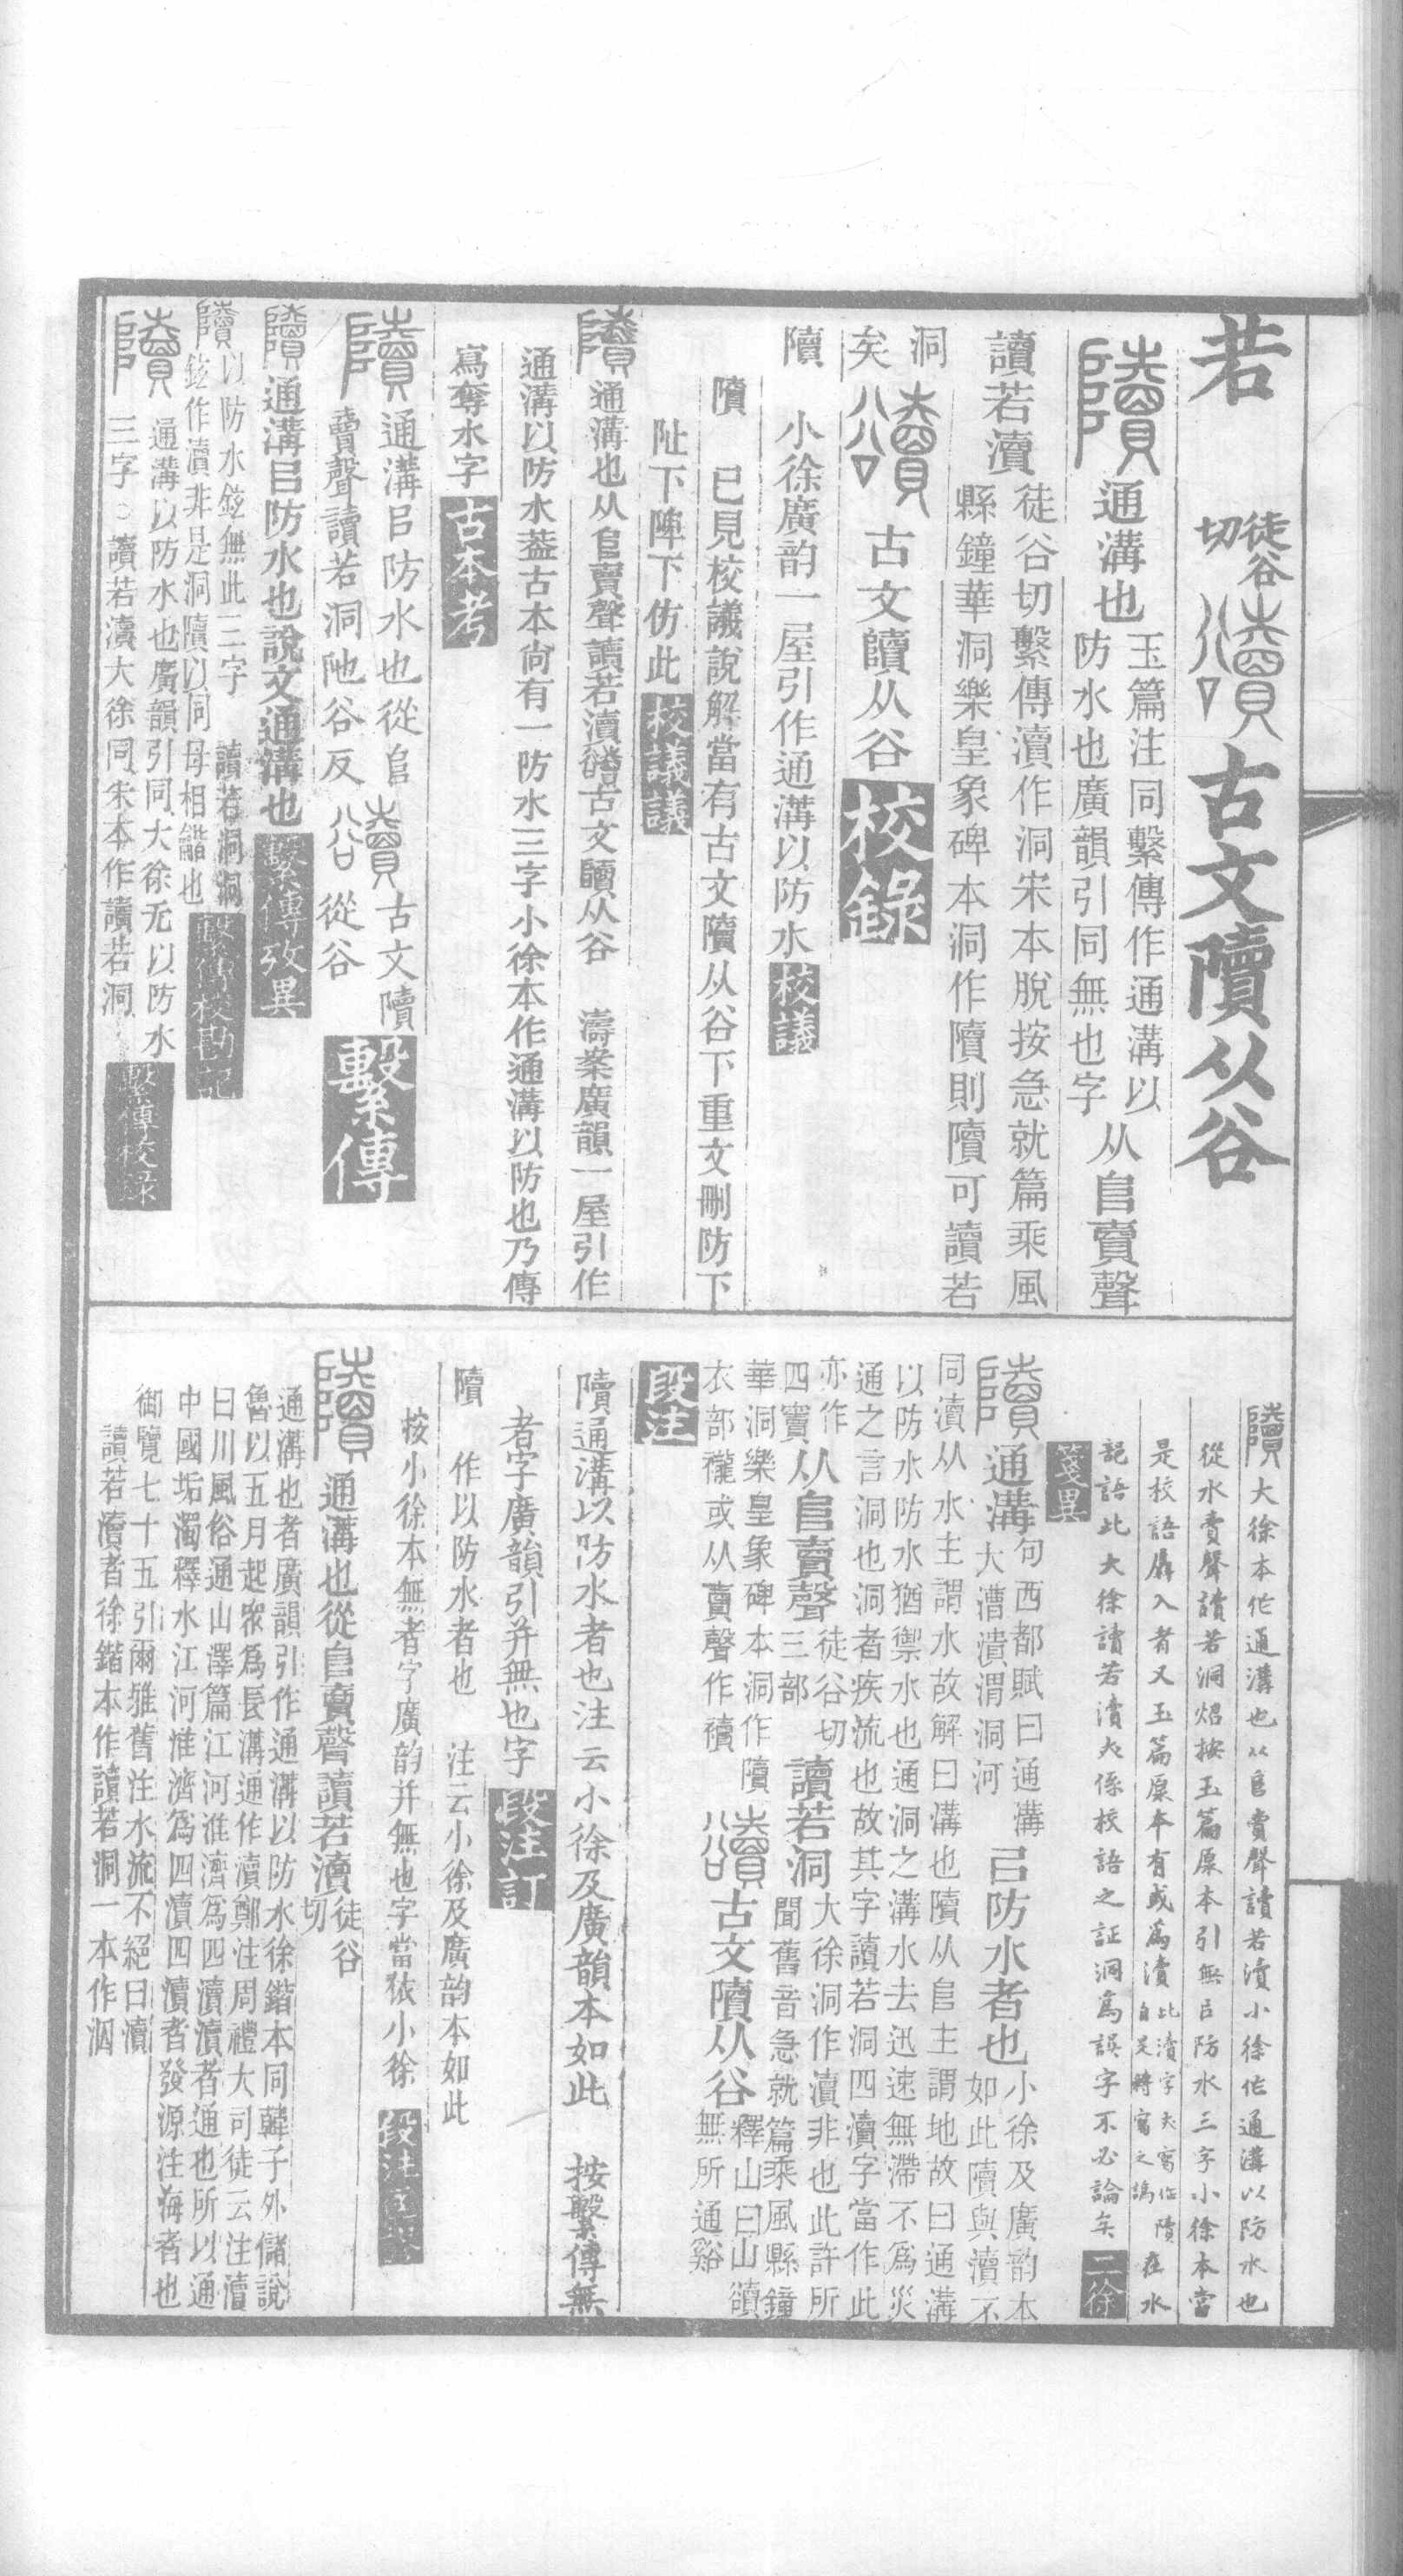 若　徒谷切　䜱古文隫从谷
隫通溝也玉篇注同繫傳作通溝以
防水也廣韻引同無也字从𨸏賣聲
讀若瀆徒谷切繫傳瀆作洞宋本脫按急就篇乘風
縣鐘華洞樂皇象碑本洞作隫則隫可讀若
洞
矣䜱古文隫从谷校錄
隫　小徐廣韵一屋引作通溝以防水校議
隫　已見校議說解當有古文隫从谷下重文刪防下
阯下陣下仿此校議議
隫通溝也从𨸏賣聲讀若瀆䜱古文隫从谷　濤案廣韻一屋引作
通溝以防水葢古本尚有一防水三字小徐本作通溝以防也乃傳
寫奪水字古本考
隫通溝㠯防水也從𨸏
賣聲讀若洞阤谷反䜱古文隫
從谷繫傳
隫通溝㠯防水也說文通溝也繫傳攷異
隫以防水鉉無此三字　讀若洞洞
鉉作瀆非是洞隫以同母相䛡也繫傳校勘記
隫通溝以防水也廣韻引同大徐无以防水
三字○讀若瀆大徐同宋本作讀若洞繫傳校錄
隫大徐本作通溝也从𨸏賣聲讀若瀆小徐作通溝以防水也
從水賣聲讀若洞炤按玉篇原本引無㠯防水三字小徐本當
是校語羼入者又玉篇原本有或爲瀆此瀆字夫寫作隫在水
自是轉寫之譌
記語此大徐讀若瀆夾係校語之証洞爲誤字不必論矣二徐
箋異
隫通溝句西都賦曰通溝
大漕潰渭洞河㠯防水者也小徐及廣韵本
如此隫與瀆不
同瀆从水主謂水故解曰溝也隫从𨸏主謂地故曰通溝
以防水防水猶禦水也通洞之溝水去迅速無滯不爲災
通之言洞也洞者疾流也故其字讀若洞四瀆字當作此
亦作
四竇从𨸏賣聲徒谷切
三部讀若洞大徐洞作瀆非也此許所
聞舊音急就篇乘風縣鐘
華洞樂皇象碑本洞作隫
衣部襱或从賣聲作襩䜱古文隫从谷釋山曰山䜱
無所通谿
段注
隫通溝以防水者也注云小徐及廣韻本如此　按繫傳無
者字廣韻引并無也字段注訂
隫　作以防水者也　注云小徐及廣韵本如此
按小徐本無者字廣韵并無也字當依小徐
隫通溝也從𨸏賣聲讀若瀆徒谷
切
通溝也者廣韻引作通溝以防水徐鍇本同韓子外儲說
魯以五月起衆爲長溝通作瀆鄭注周禮大司徒云注瀆
曰川風俗通山澤篇江河淮濟爲四瀆瀆者通也所以通
中國垢濁釋水江河惟濟爲四瀆四瀆者發源注海者也
御覽七十五引爾雅舊注水流不絕曰瀆
讀若瀆者徐鍇本作讀若洞一本作泅